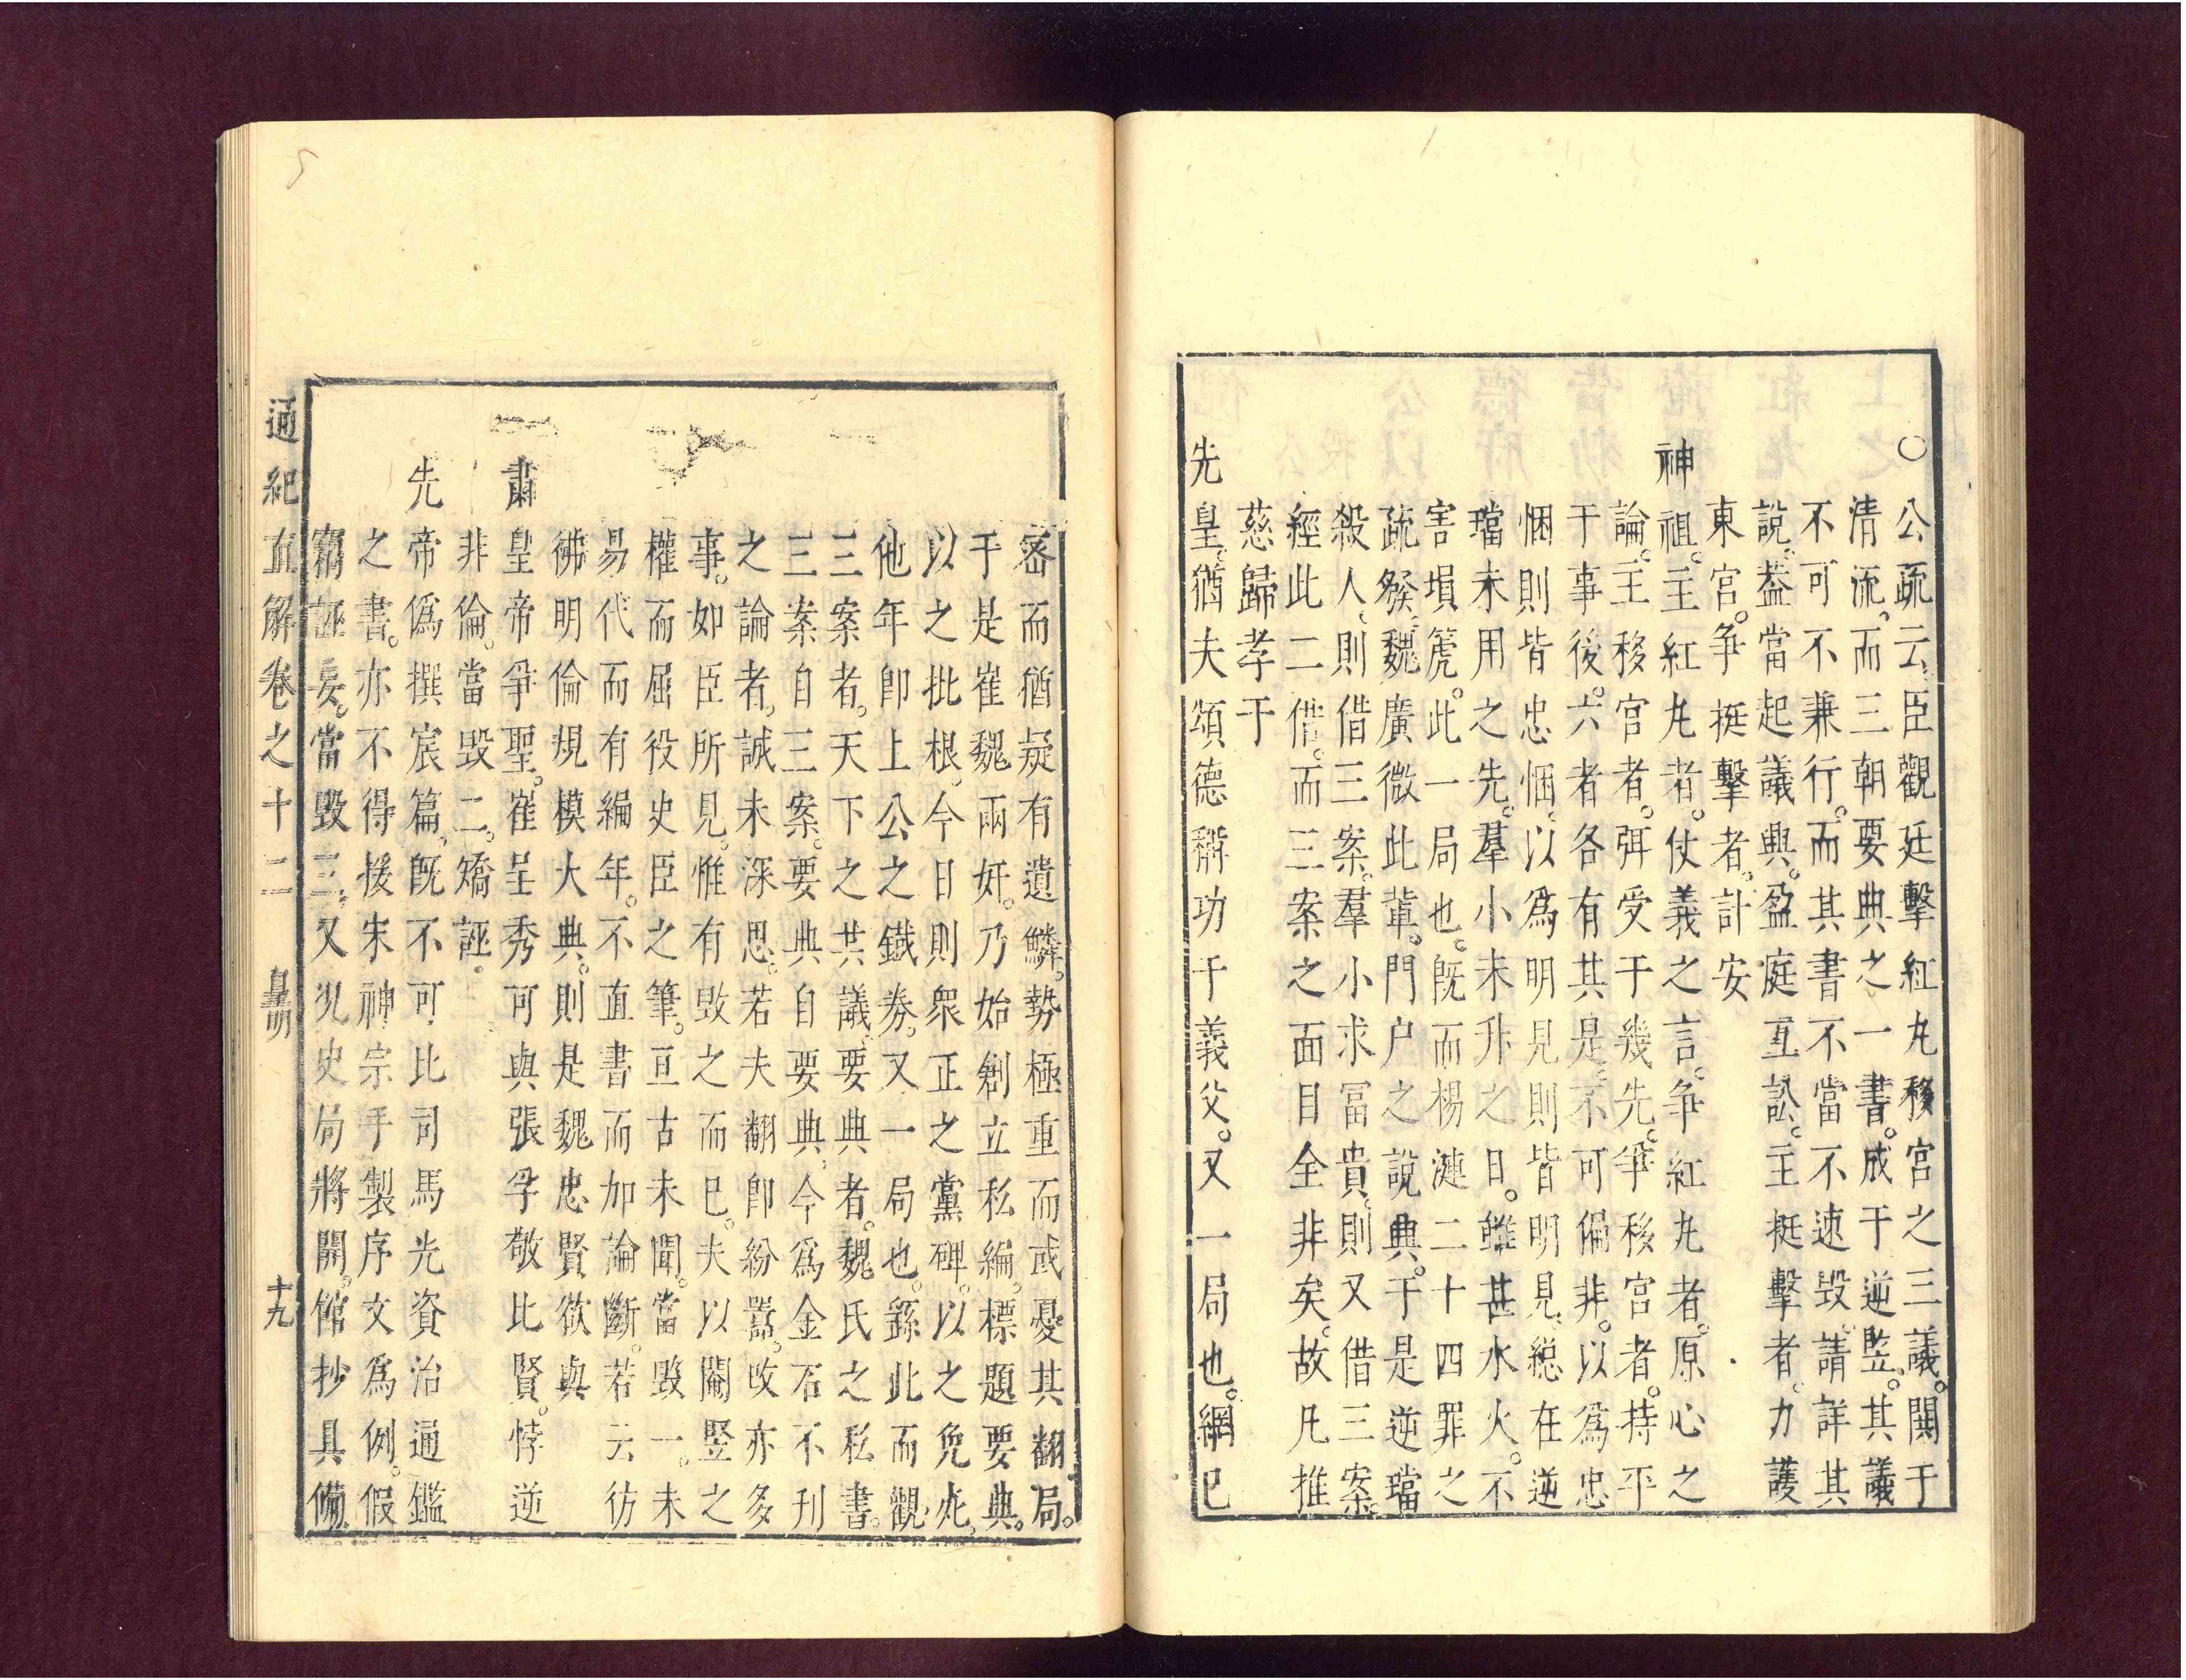 ○公疏云臣觀廷擊紅丸移宮之三議。閧于
清流。而三朝要典之一書。成于逆監。其議
不可不兼行。而其書不當不速毀。請詳其
說。葢當起議興。盈庭互訟。主挺擊者。力護
東宮。爭挺擊者。計安
神祖。主紅丸者。仗義之言。爭紅丸者。原心之
論。主移宮者。弭受于幾先。爭移宮者。持平
于事後。六者各有其是。不可偏非。以爲忠
悃則皆忠悃。以爲明見則皆明見。總在逆
璫未用之先。羣小未升之日。雖甚水火。不
害塤箎。此一局也。旣而楊漣二十四罪之
疏發。魏廣微此輩。門户之說興。于是逆璫
殺人。則借三案。羣小求冨貴。則又借三案。
經此二借。而三案之面目全非矣。故凡推
慈歸孝于
先皇。猶夫頌德稱功于義父。又一局也。網已
宻而猶疑有遺鱗。勢極重而或憂其翻局。
于是崔魏兩奸。乃始創立私編。標題要典。
以之批根。今日則衆正之黨碑。以之免死。
他年卽上公之鐵券。又一局也。繇此而觀。
三案者。天下之共議。要典者。魏氏之私書。
三案自三案。要典自要典。今爲金石不刋
之論者。誠未深思。若夫翻卽紛囂。改亦多
事。如臣所見。惟有毀之而已。夫以閹竪之
權而屈役史臣之筆。亘古未聞。當毀一。未
易代而有編年。不直書而加論斷。若云彷
彿明倫規模大典。則是魏忠賢欲與
肅皇帝爭聖。崔呈秀可與張孚敬比賢。悖逆
非倫。當毀二。矯誣
先帝僞撰宸篇。旣不可比司馬光資治通鑑
之書。亦不得援宋神宗手製序文爲例。假
竊誣妄。當毀三。又况史局將開。館抄具備
通紀直解卷之十二 皇明 十九